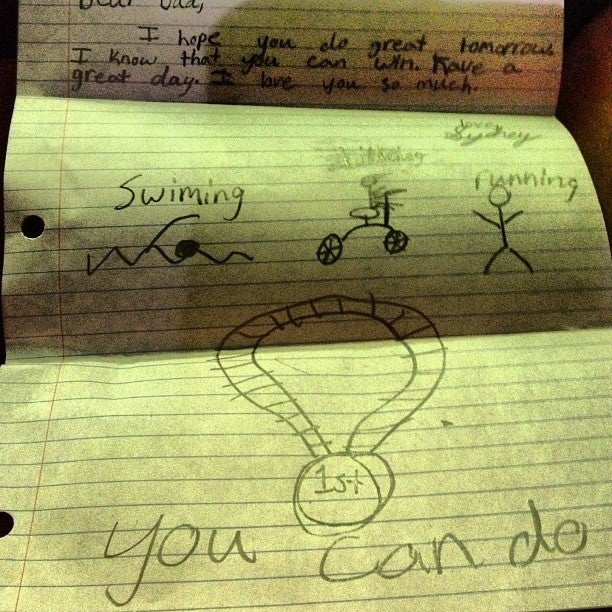 Dear Dad,
I hope you do great tomorrow
I know that you can win. Have a
great day. I love you so much.
love
Sydney
Swiming
running
1st
you can do